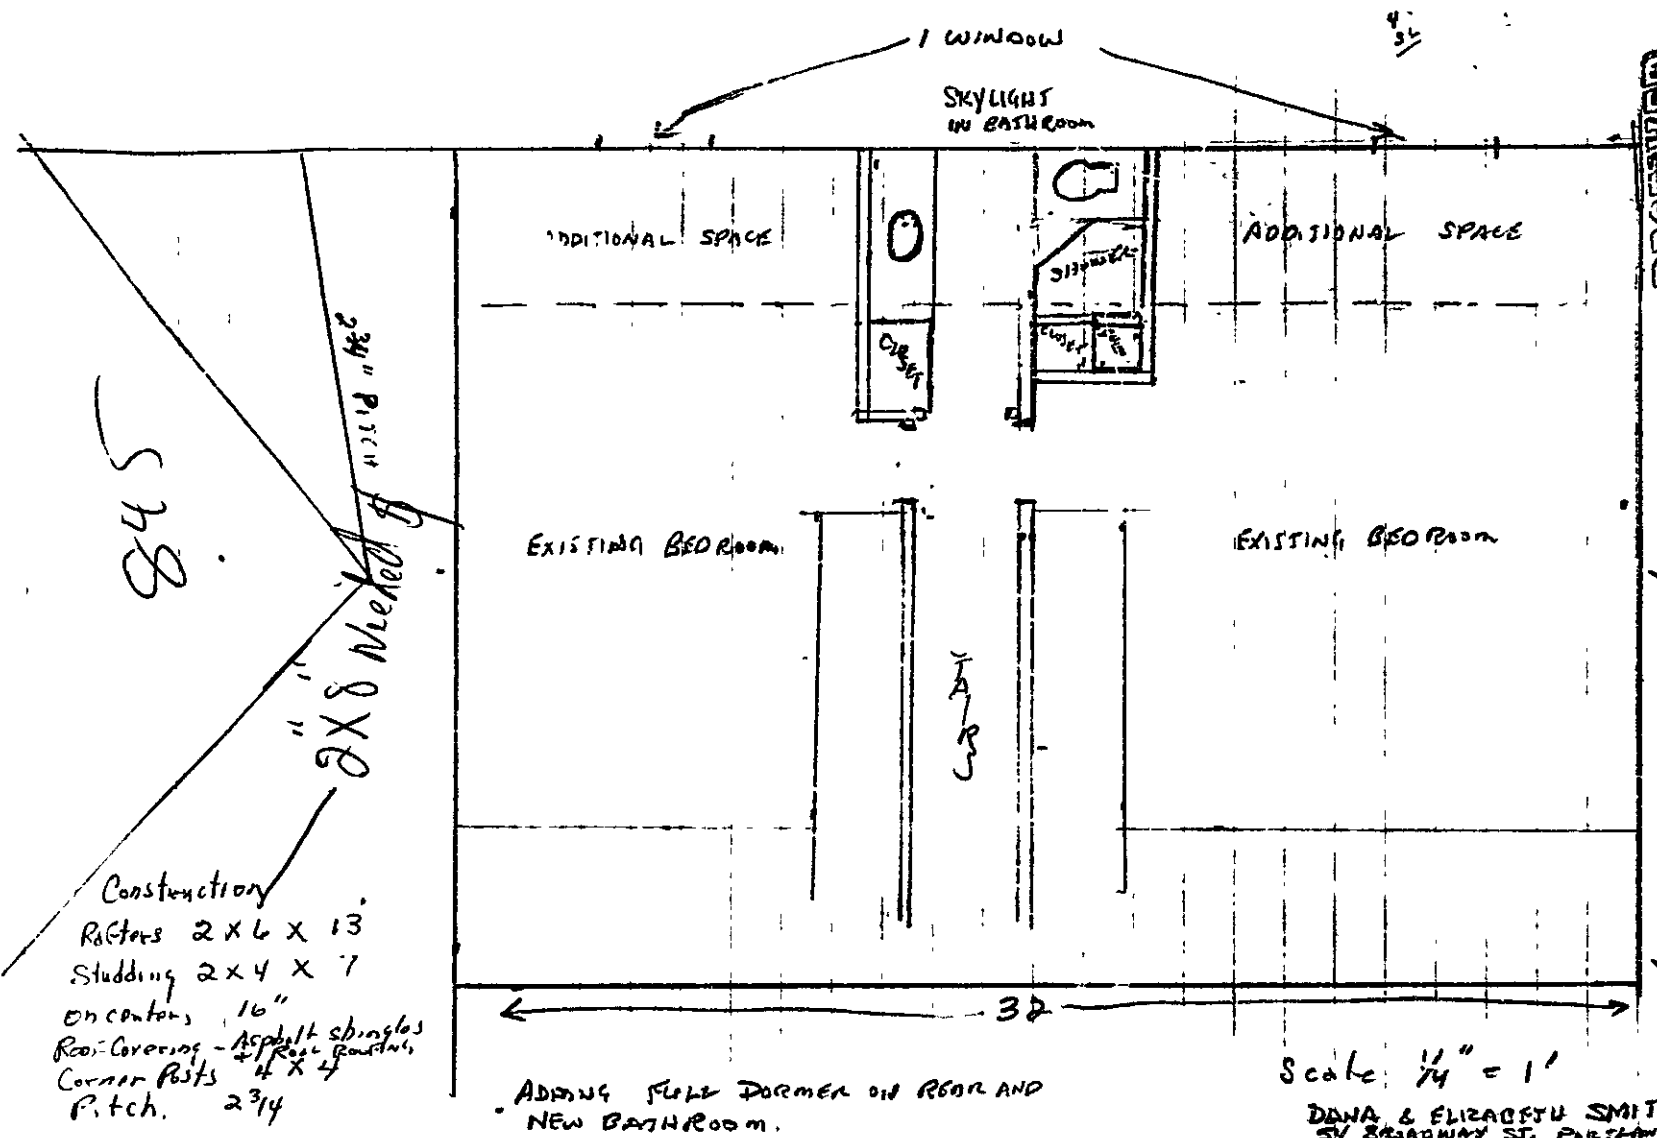 1 WINDOW
SKYLIGHT
IN BATHROOM
ADDITIONAL SPACE
ADDITIONAL SPACE
SHOWER
CLOSET
CLOSET
2 3/4" PITCH
845
2X8 Needed
EXISTING BEDROOM
EXISTING BEDROOM
STAIRS
Construction
Rafters 2 X 6 X 13'
Studding 2 X 4 X 7
on centers 16"
Roof Covering - Asphalt shingles
+ Roll Roofing
Corner Posts 4 X 4
Pitch. 2 3/4
32
Scale 1/4" = 1'
ADDING FULL DORMER ON REAR AND
NEW BATHROOM.
DANA & ELIZABETH SMIT
BROADWAY ST.